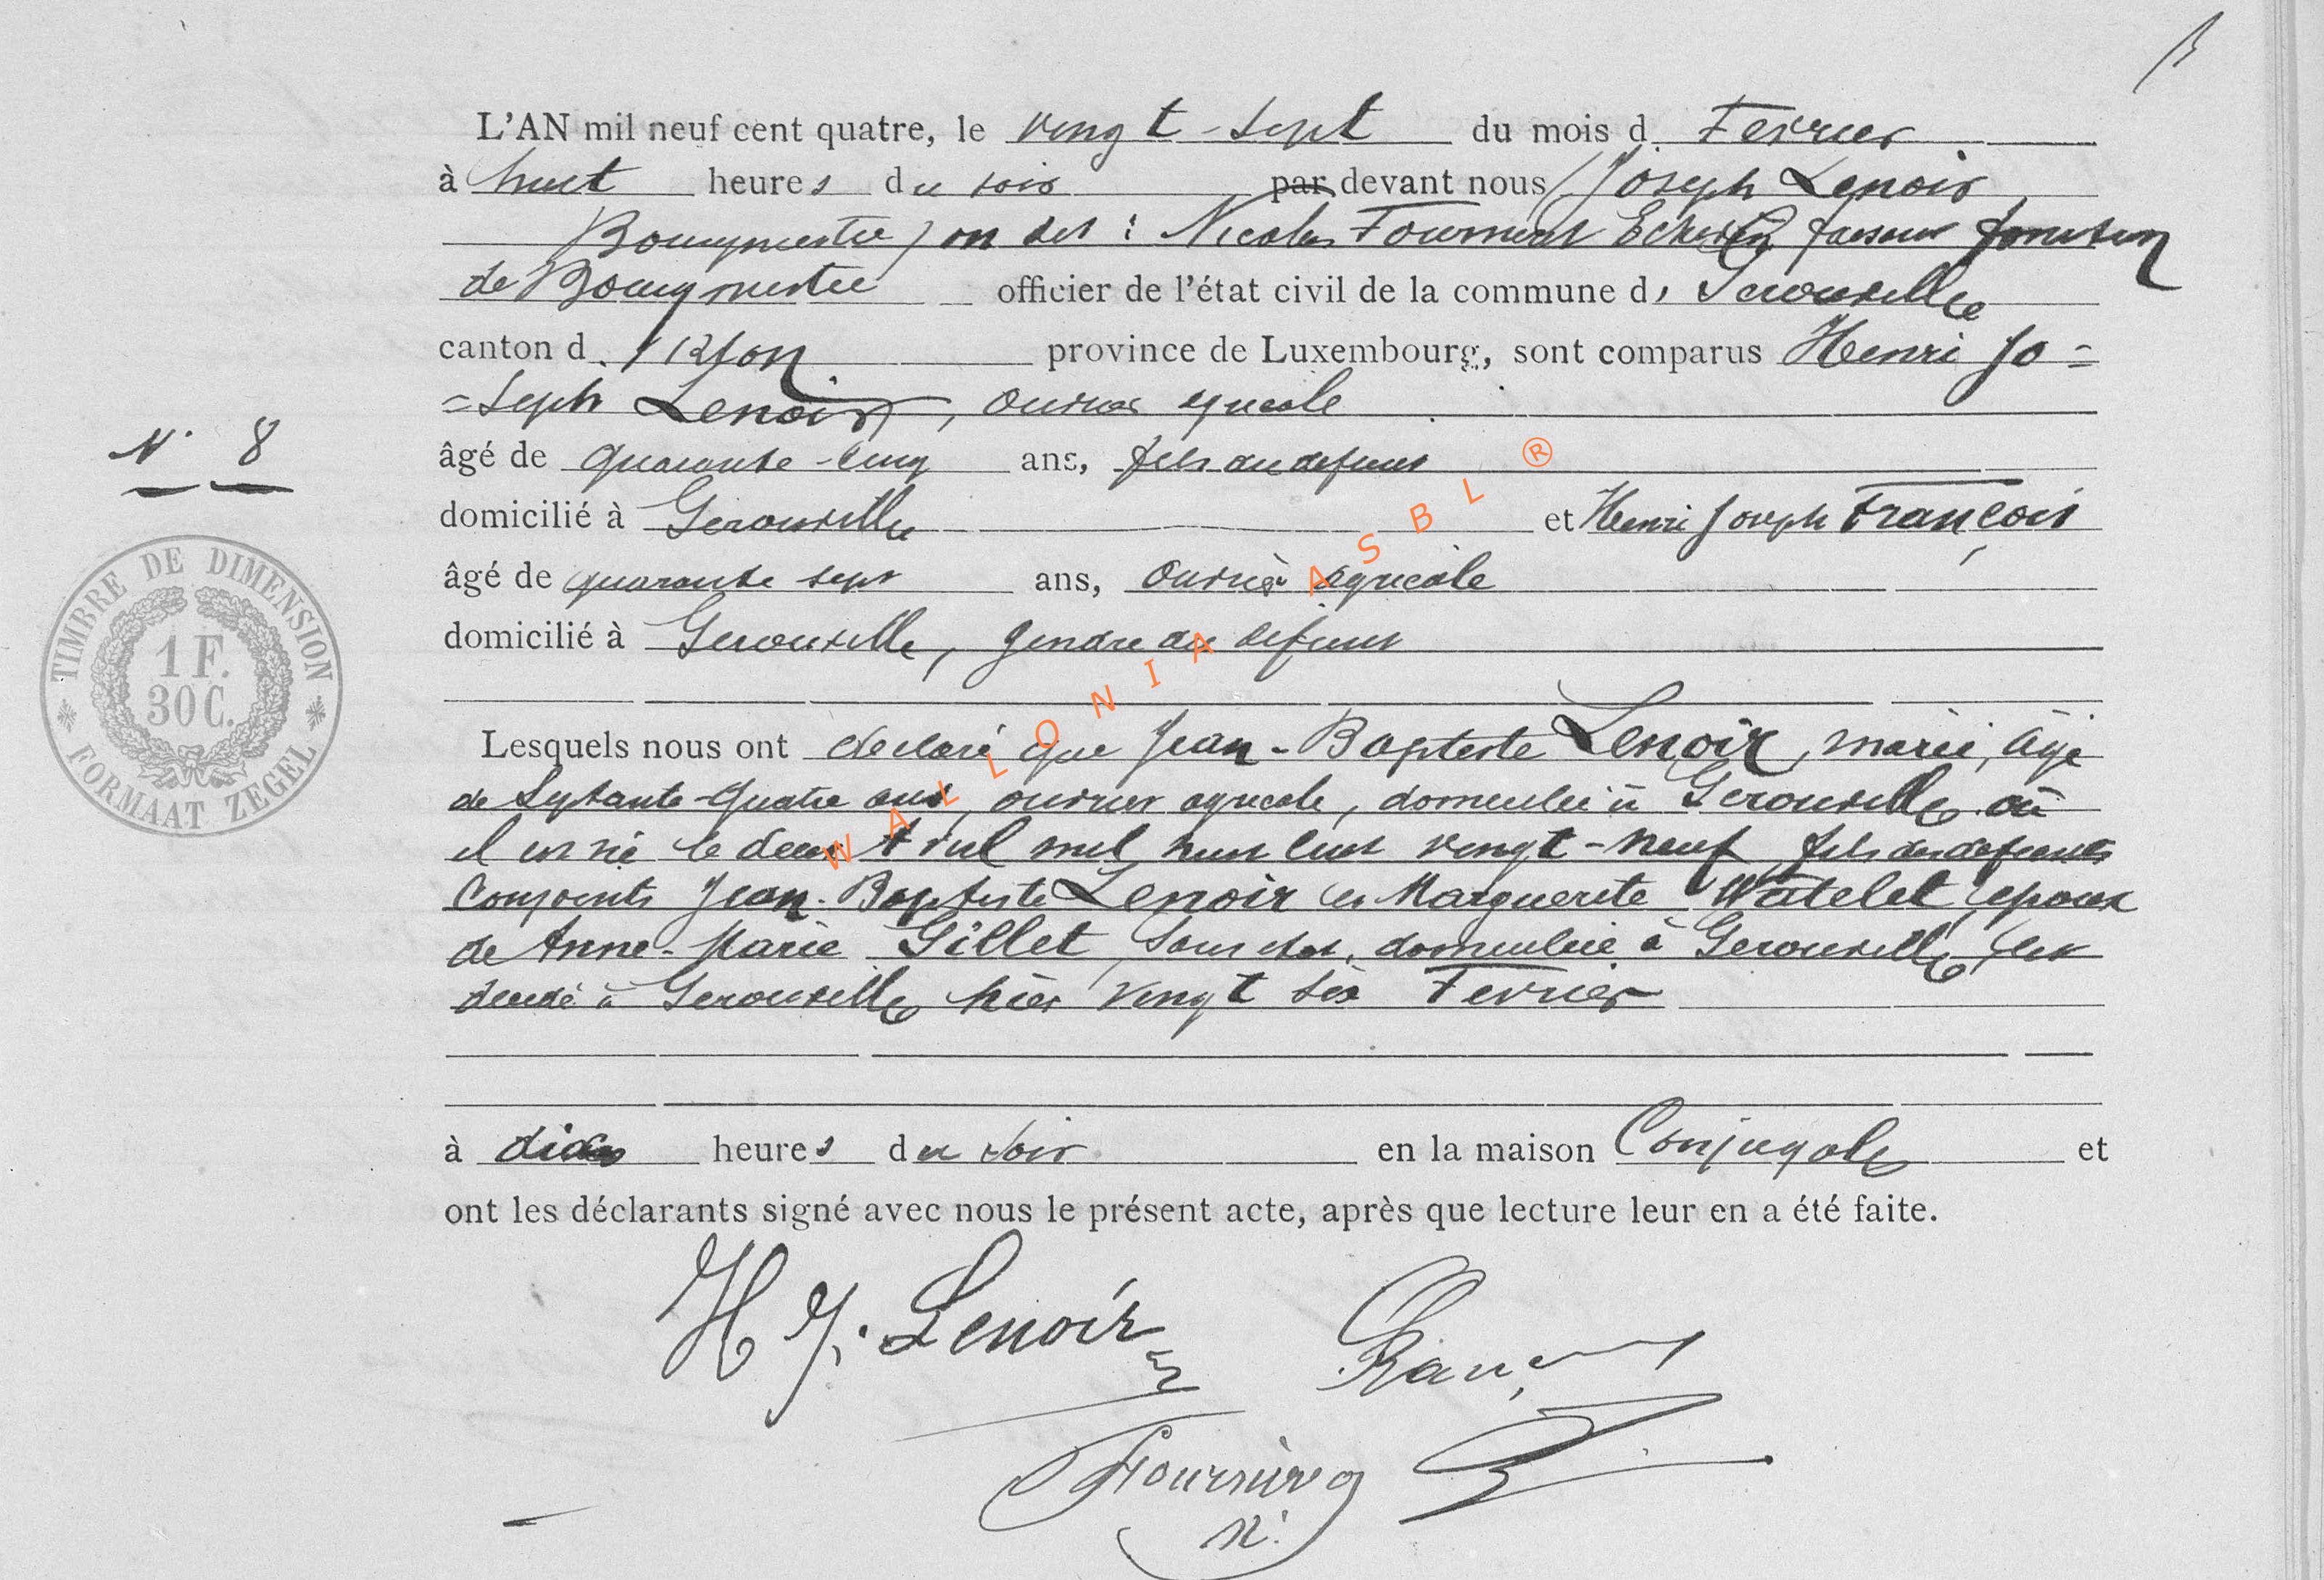 L'AN mil neuf cent quatre, le vingt-sept du mois d Fevrier
à huit heures du soir par devant nous (Joseph Lenoir
Bourgmestre) on dit : Nicolas Echevin faisant fonction
de Bourgmestre officier de l'état civil de la commune d, Gerouville
canton d. Virton province de Luxembourg, sont comparus Henri Jo=
=seph Lenoir, ouvrier agricole
N° 8
âgé de quarante-cinq ans, fils du defunt
domicilié à Gerouville et Henri Joseph François
âgé de quarante sept ans, ouvrier agricole
domicilié à Gerouville, gendre du defunt
TIMBRE DE DIMENSION
1 F.
30 C.
FORMAAT ZEGEL
WALLONIA ASBL ®
Lesquels nous ont declaré que Jean-Baptiste Lenoir, marié, âgé
de septante-quatre ans, ouvrier agricole, domicilié à Gerouville où
il est né le deux Avril mil huit cent vingt-neuf, fils des defunts
conjoints Jean-Baptiste Lenoir et Marguerite Watelet, epoux
de Anne-Marie Gillet, sans etat, domiciliée à Gerouville, est
décédé à Gerouville hier vingt six Fevrier
à dix heures du soir en la maison Conjugale et
ont les déclarants signé avec nous le présent acte, après que lecture leur en a été faite.
H J. Lenoir